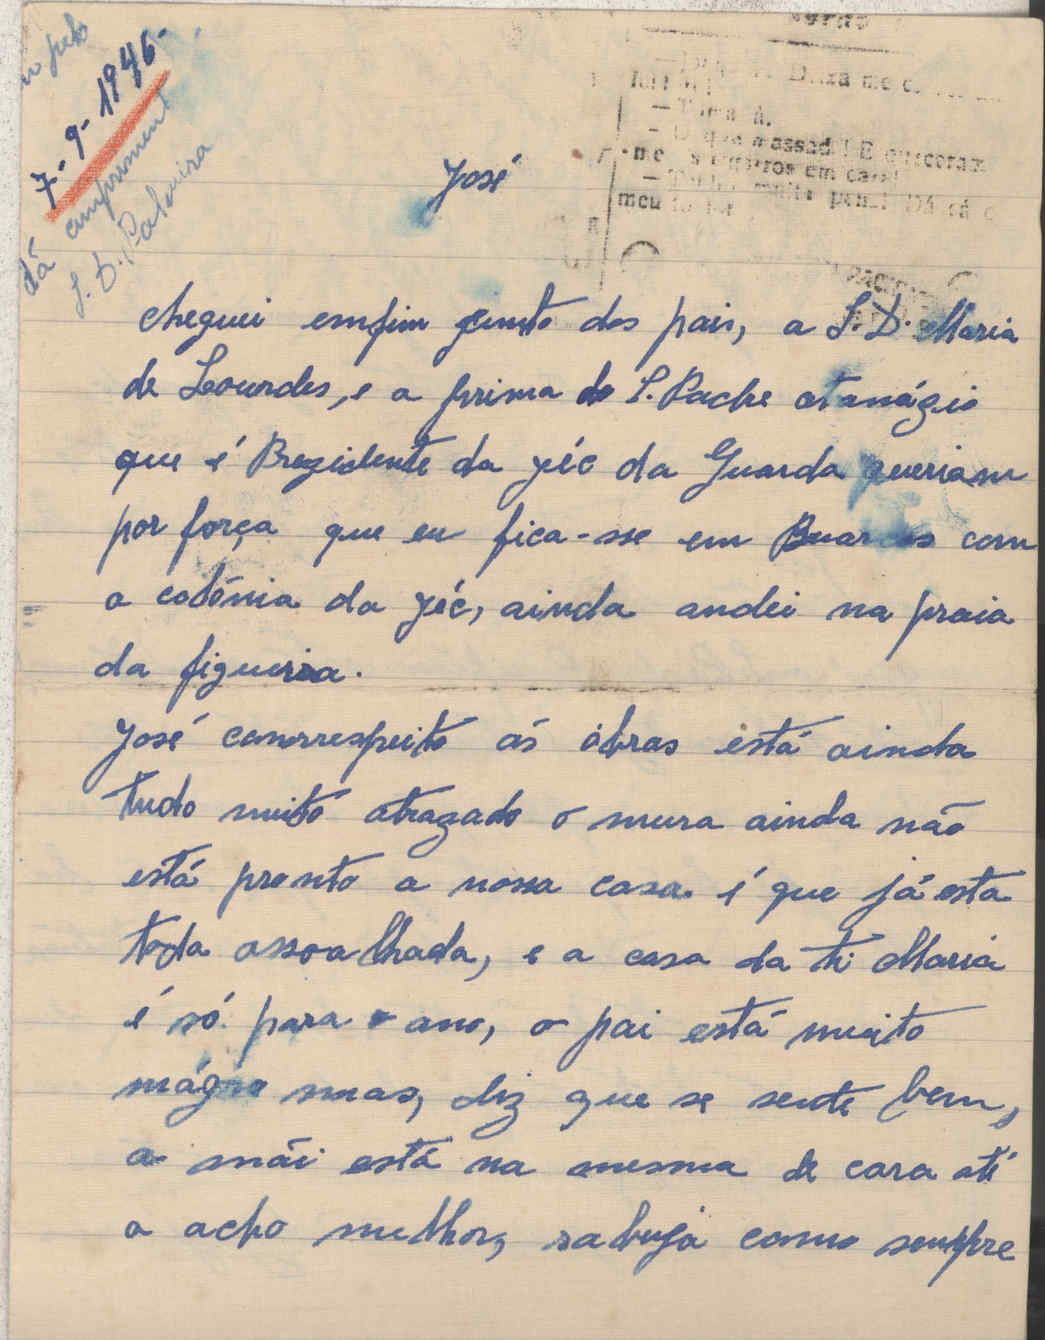 7-9-1946-
dá cumpriment
S. D. Palmira
José
cheguei emfim junto dos pais, a S. D. Maria
de Lourdes, e a prima do S. Padre atanázio
que é Prezidente da jéc da Guarda queriam
por força que eu fica-sse em Buarcos com
a colónia da jéc, ainda andei na praia
da figueira.
José comrrespeito ás óbras está ainda
tudo muitó atrazado o mura ainda não
está pronto a nossa casa é que já esta
toda assoalhada, e a casa da ti Maria
é só para o ano, o pai está muito
mágro mas, diz que se sente bem,
a mãi está na mesma de cara até
a acho melhor, rabuja como sempre